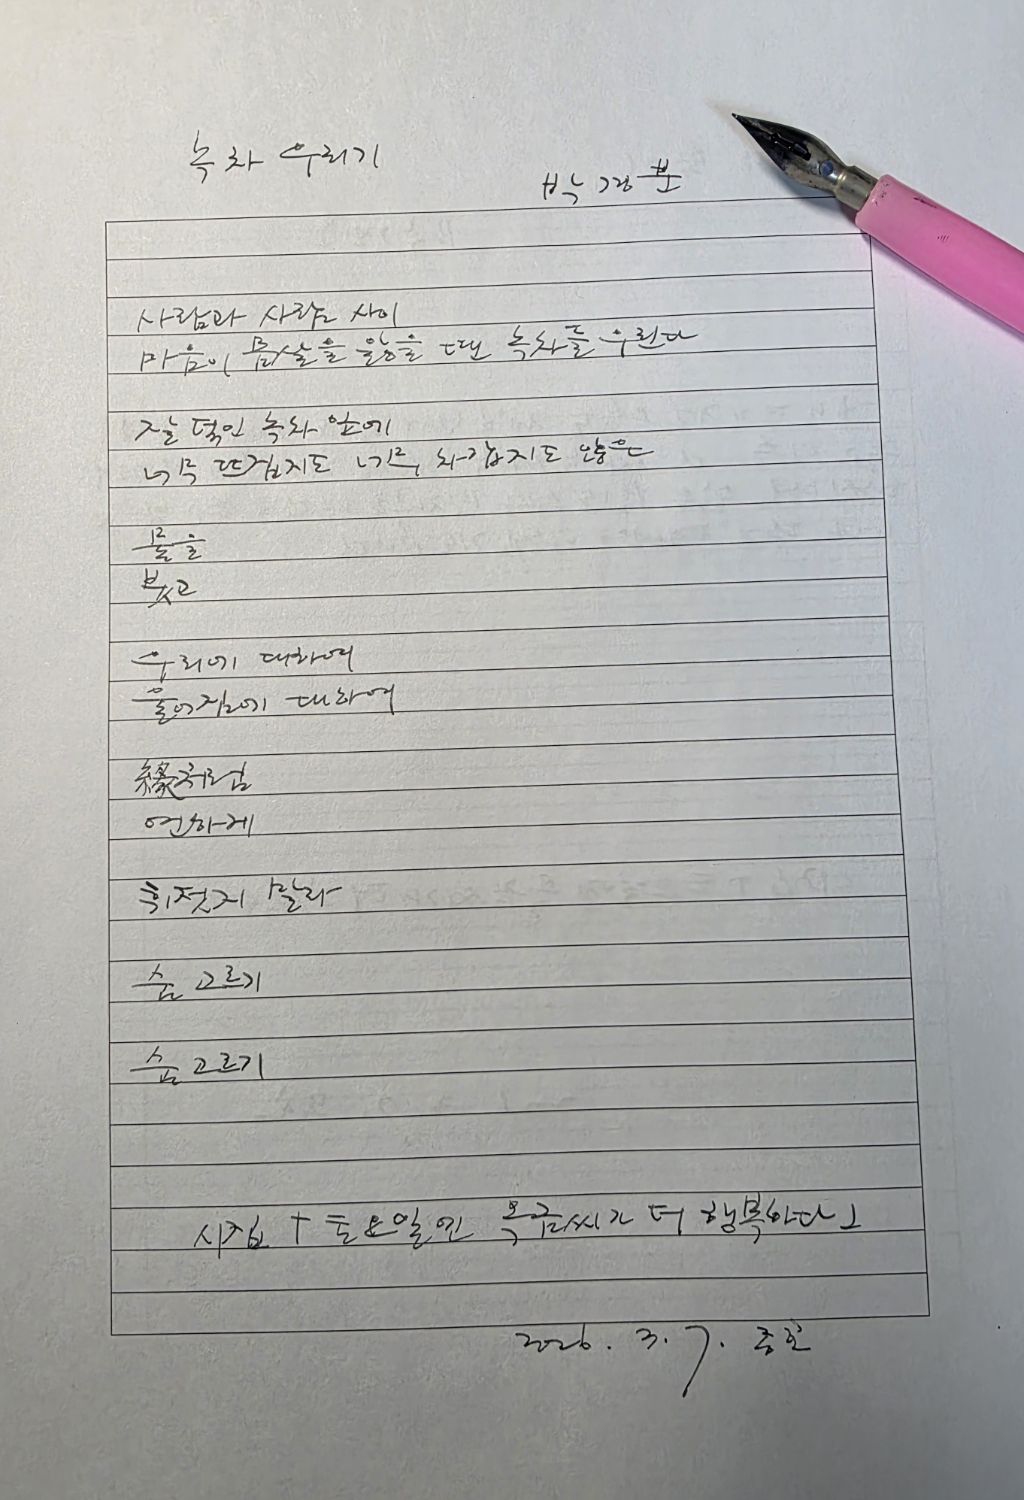 녹차 우리기
박경분
사람과 사람 사이
마음이 몸살을 앓을 땐 녹차를 우린다
잘 덖인 녹차 잎에
너무 뜨겁지도 너무 차갑지도 않은
물을
붓고
우리에 대하여
울어짐에 대하여
緣처럼
연하게
휘젓지 말라
숨 고르기
숨 고르기
시집 ↑ 토요일엔 옥금씨가 더 행복하다 」
2026. 3. 7.